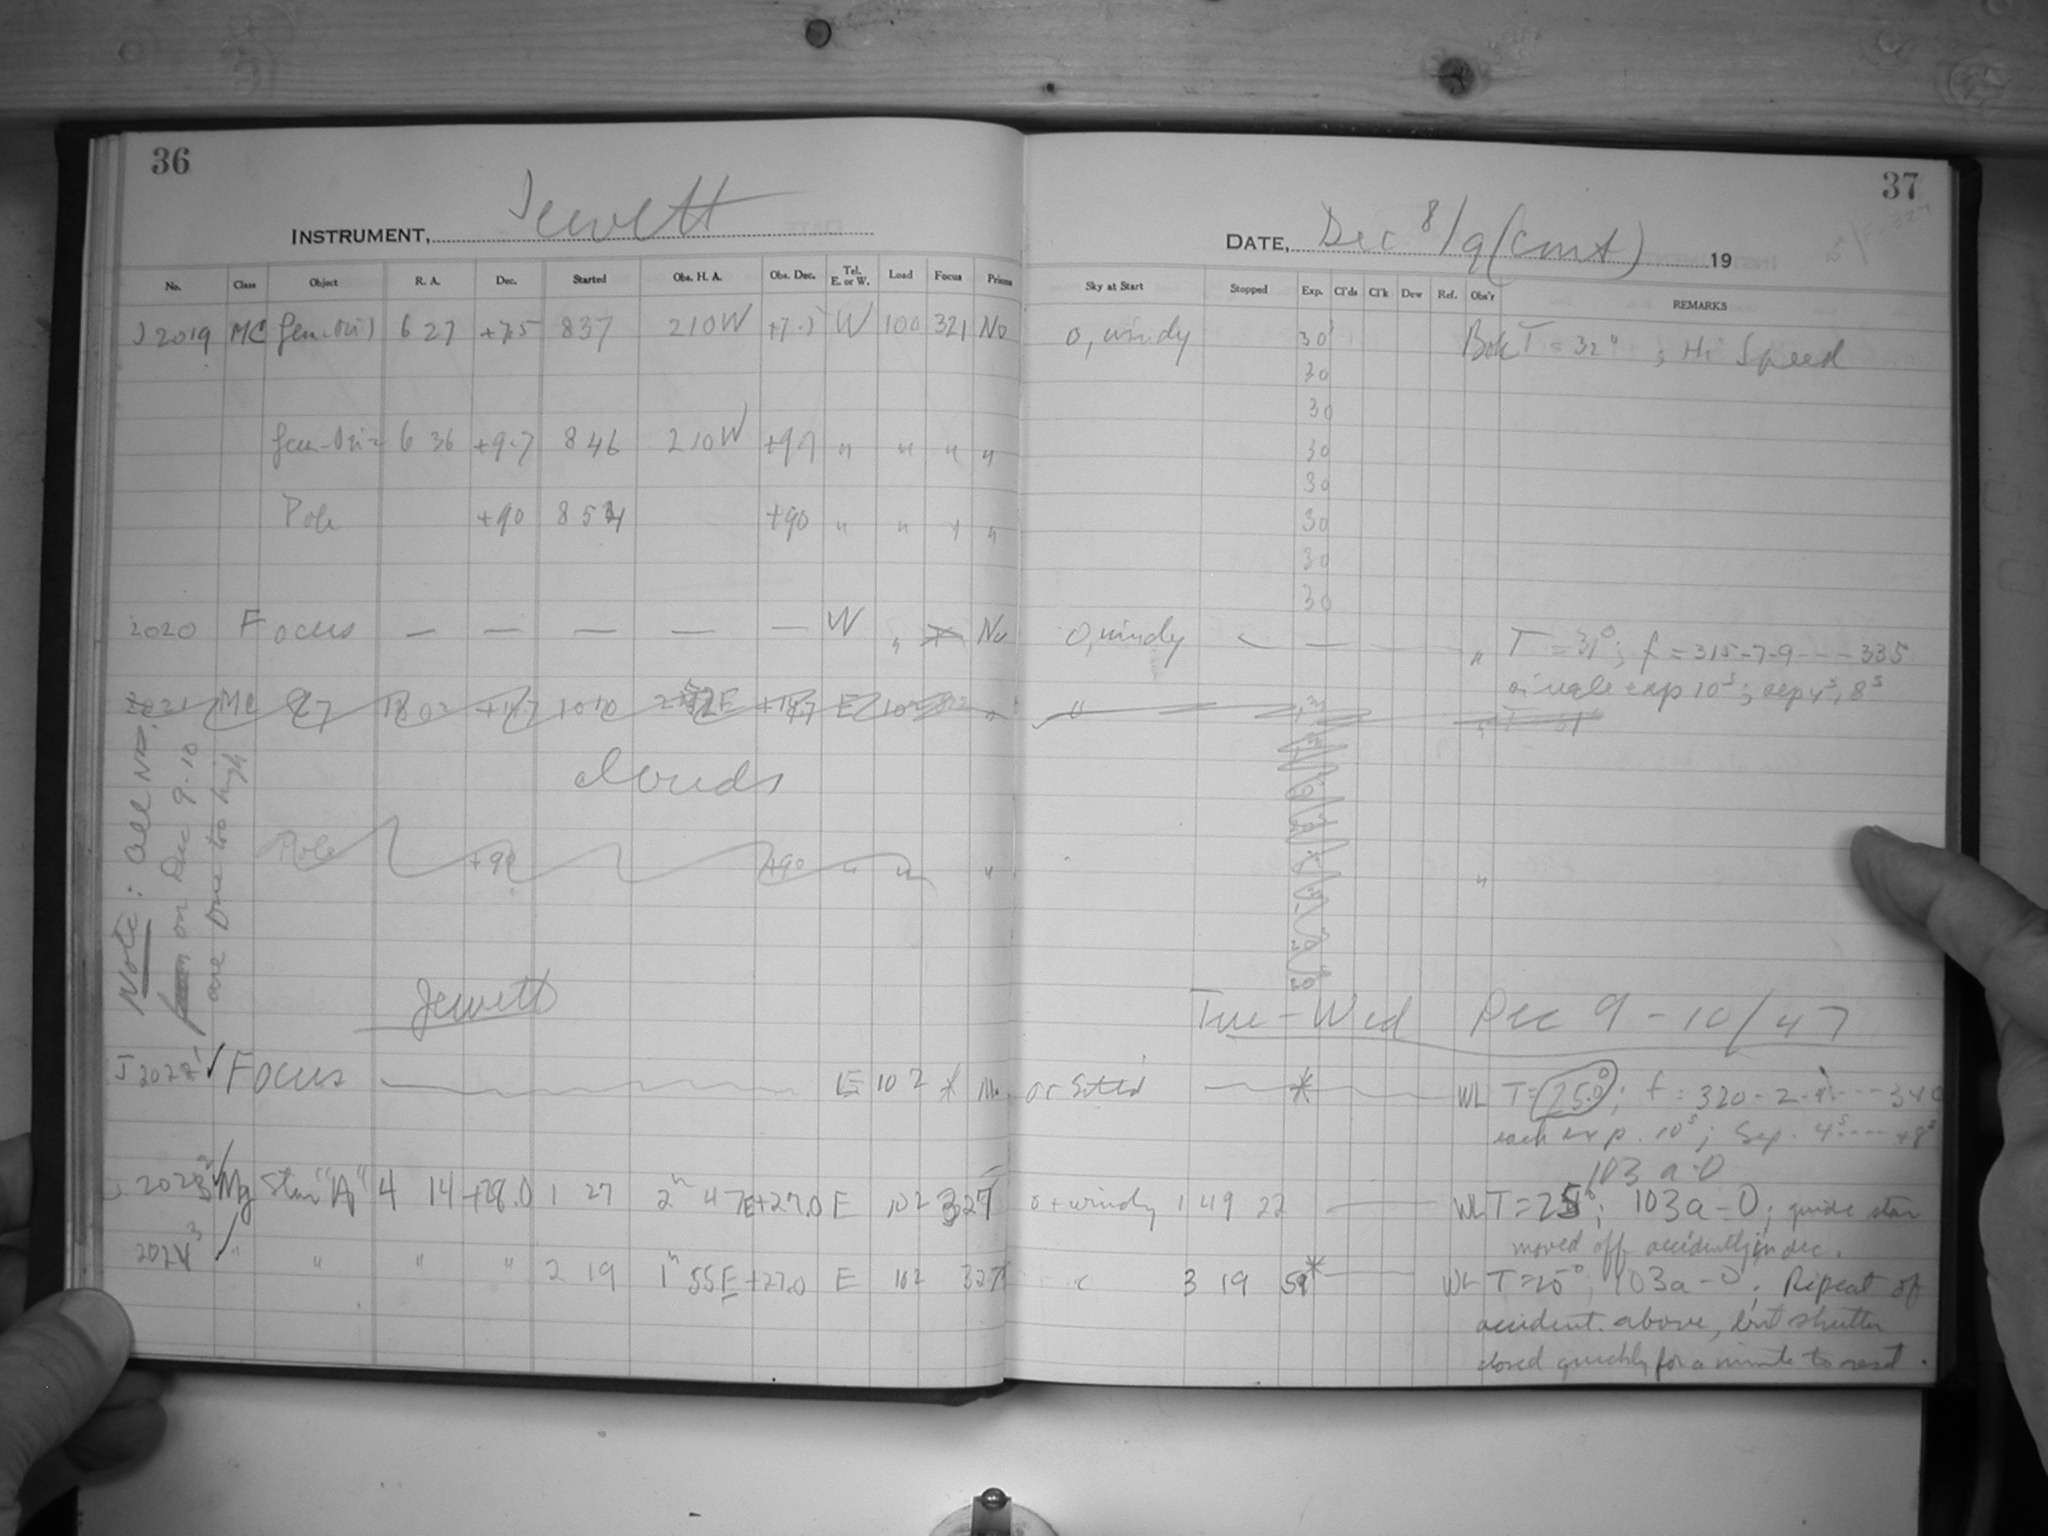 36
INSTRUMENT, Jewett
No. Class Object R. A. Dec. Started Obs. H. A. Obs. Dec. Tel. E. or W. Load Focus Prism
J 2019 MC Gem-Ori 1 6 27 +7.5 837 210W +7.5 W 100 321 No
Gem-Ori 2 6 36 +9.7 8 46 2 10W +9.7 " " " "
Pole +90 8 54 +90 " " " "
2020 Focus — — — — — W " No
2021 MC +90
clouds
Pole +90 +90 " " "
Note: all nos.
on Dec 9-10
are one too high
Jewett
J 202 Focus E 102 *
202 Mg Star "A" 4 14 +28.0 1 27 2h 47E +27.0 E 102 327
202 " " " " 2 19 1h 55E +27.0 E 102 327
37
DATE, Dec 8/9 (cont) 19
Sky at Start Stopped Exp. Cl'ds Cl'k Dew Ref. Obs'r REMARKS
0, windy 30 Bok T = 32° ; Hi Speed
30
30
30
30
30
30
30
0, windy — — — " T = 31°; f = 315-7-9---335
single exp 10s; sep 4s, 8s
"
"
Tue-Wed Dec 9-10/47
* WL T = 25.0°; f = 320-2-4---340
each exp. 10s; Sep. 4s---+8s
103 a-O
0+windy 1 49 22 — WL T=25°; 103a-O; guide star
moved off accidently in dec.
3 19 59* — WL T=25°; 103a-O; Repeat of
accident above, but shutter
closed quickly for a minute to reset.